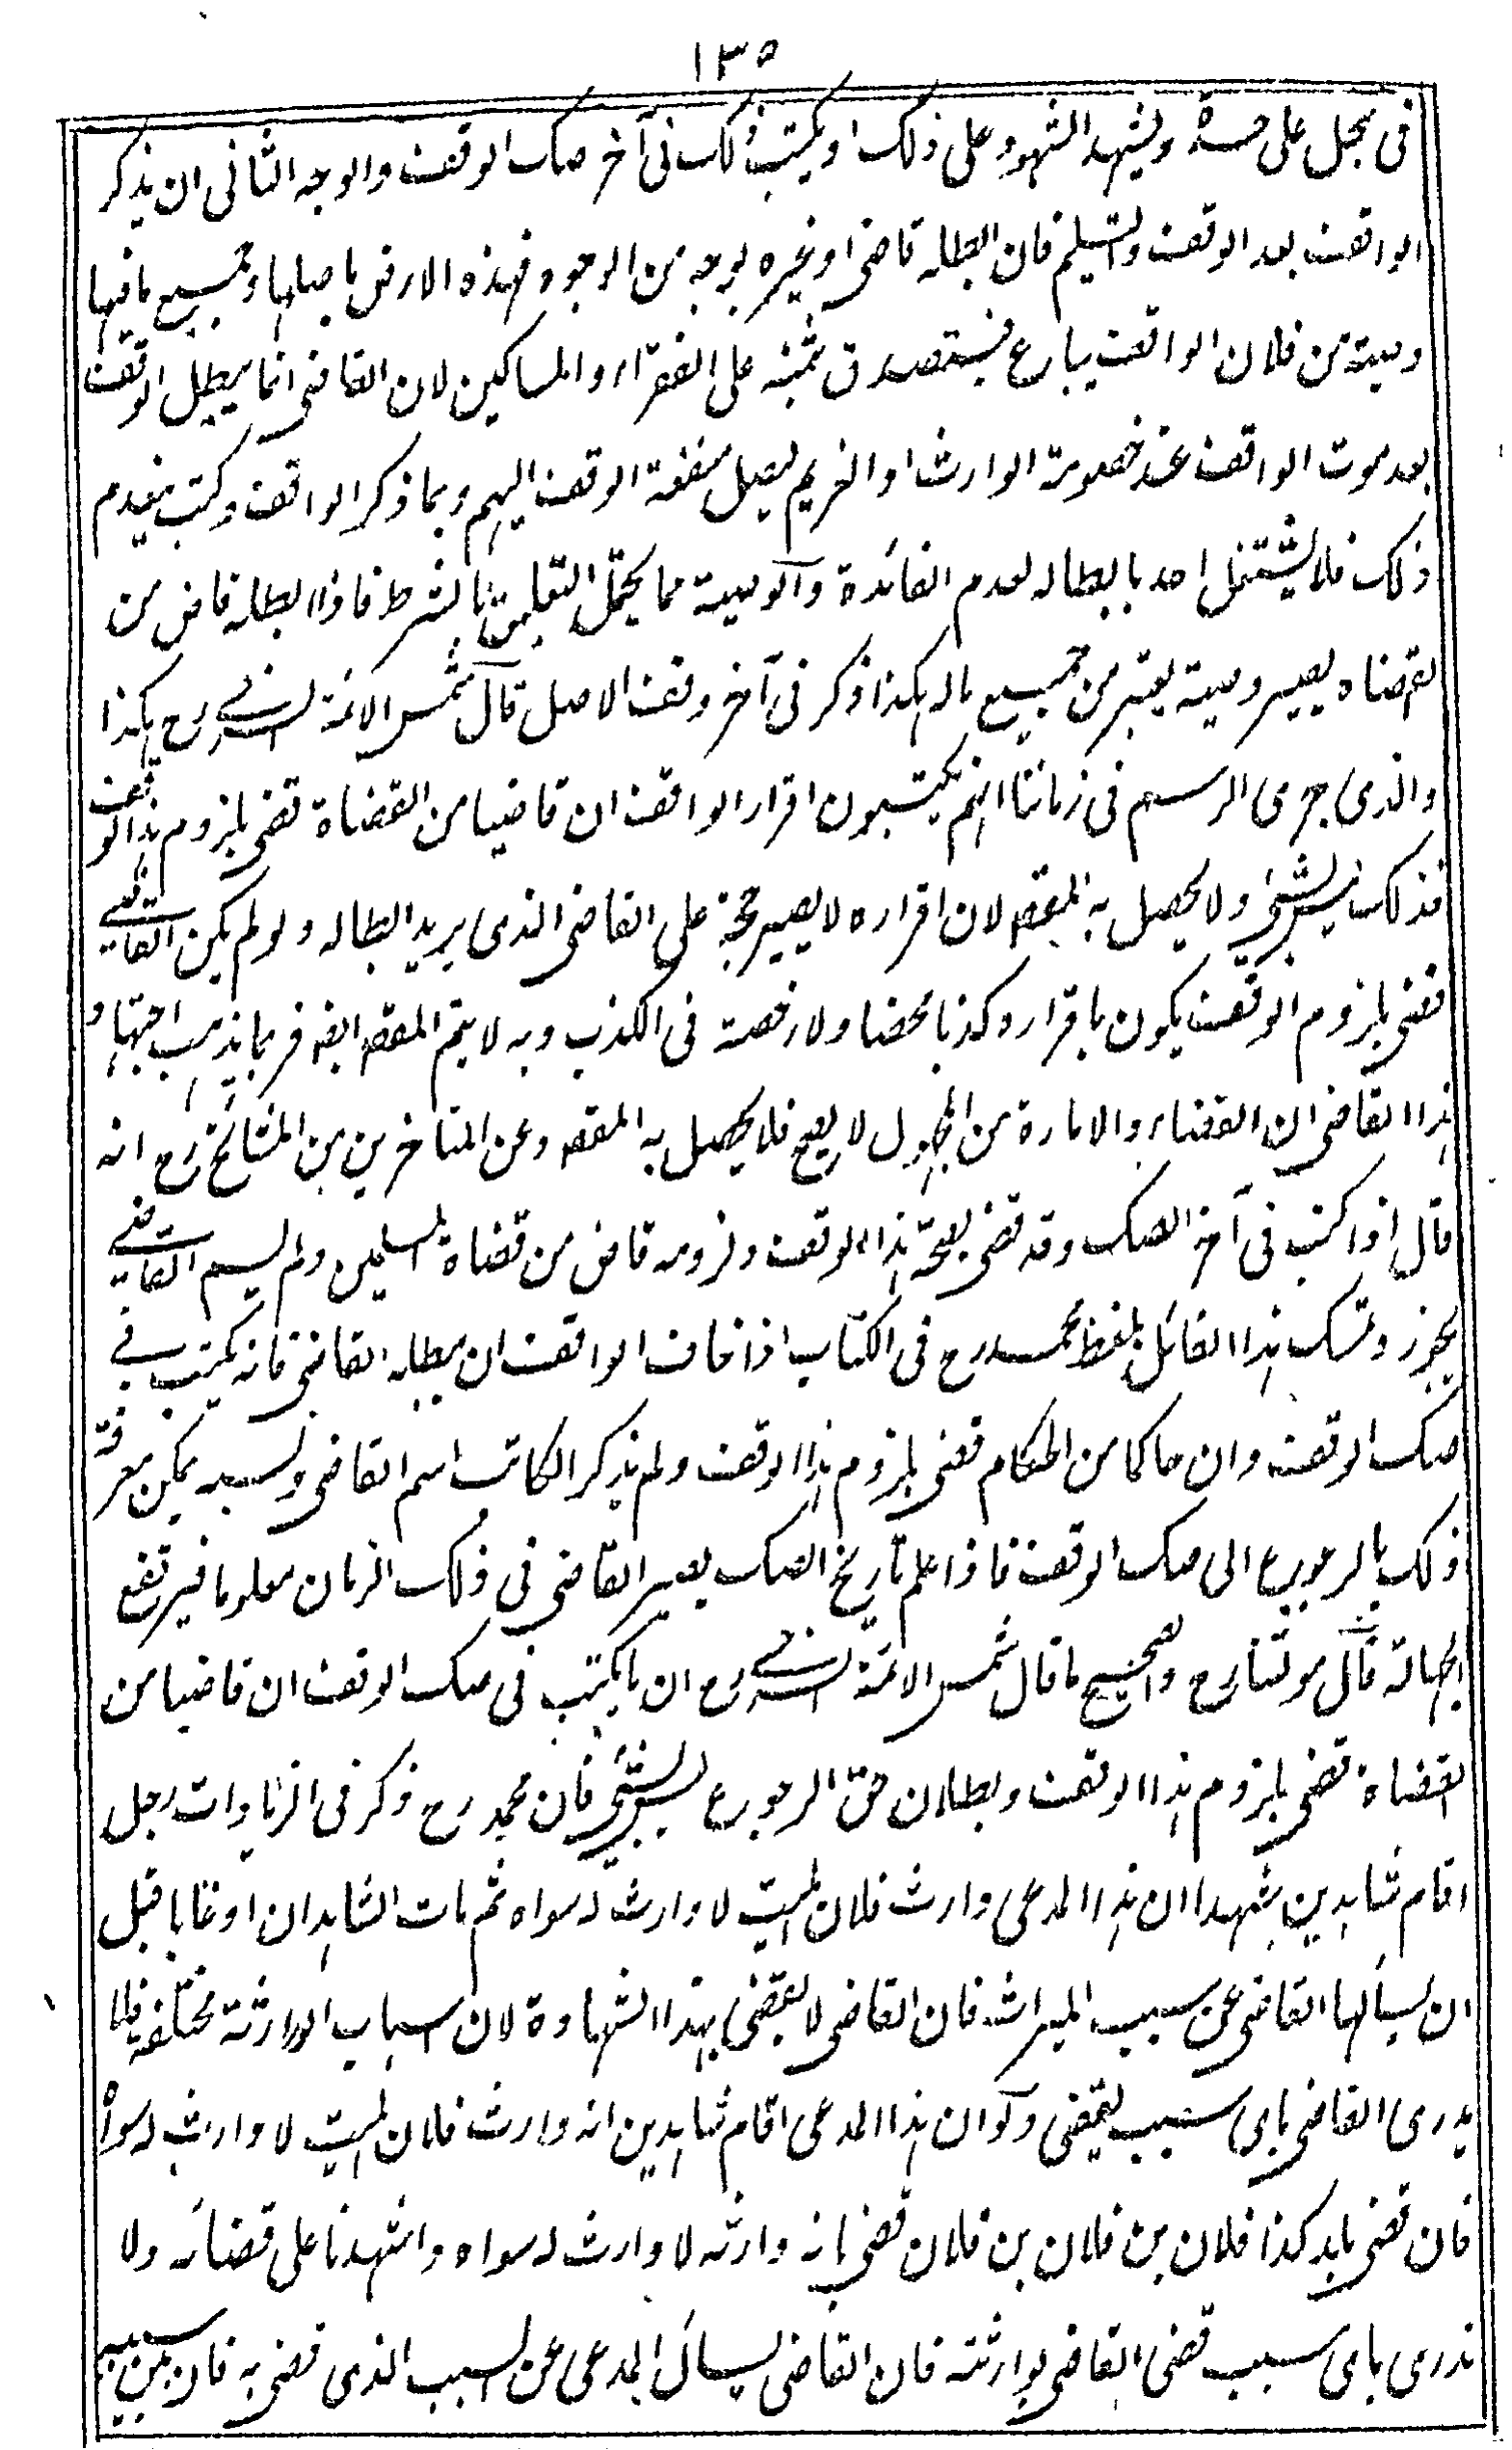 ١٣٥
فى سجل على حدة ويشهد الشهود على ذلك او يكتب ذلك فى آخر صك الوقف والوجه الثانى ان يذكر
الواقف بعد الوقف والتسليم فان ابطله قاضى او غيره بوجه من الوجوه فهذه الارض باصلها وجميع ما فيها
وصية من فلان الواقف يباع فيتصدق بثمنه على الفقراء والمساكين لان القاضى انما يبطل الوقف
بعد موت الواقف عند خصومة الوارث او الغريم ليصل منفعة الوقف اليهم وبما ذكر الواقف وكتب ينعدم
ذلك فلا يشتغل احد بابطاله لعدم الفائدة والوصية مما يحتمل التعليق بالشرط فاذا ابطله قاض من
القضاه يصير وصية يعتبر من جميع ماله هكذا ذكر فى آخر وقف الاصل قال شمس الائمة السرخسي رح هكذا
والذى جرى الرسم فى زماننا انهم يكتبون اقرار الواقف ان قاضيا من القضاة قضى بلزوم هذا الوقف
فذلك ليس بشئ ولا يحصل به المقصـ لان اقراره لا يصير حجة على القاضى الذى يريد ابطاله ولو لم يكن القاضي
قضى بلزوم الوقف يكون باقراره كذبا محضا ولا رخصة فى الكذب وبه لا يتم المقصـ ايضـ فربما يذهب اجتهاد
هذا القاضى ان القضاء والامارة من المجهول لا يصح فلا يحصل به المقصـ وعن المتاخرين من المشائخ رح انه
قال اذا كتب فى آخر الصك وقد قضى بصحة هذا الوقف ولزومه قاض من قضاة المسلمين ولم يسم القاضي
يجوز وتمسك هذا القائل بلفظ محمد رح فى الكتاب اذا خاف الواقف ان يبطله القاضى فانه يكتب في
صك الوقف وان حاكما من الحكام قضى بلزوم هذا الوقف ولم يذكر الكاتب اسم القاضى ونسبه يمكن معرفة
ذلك بالرجوع الى صك الوقف فاذا علم تاريخ الصك يصير القاضى فى ذلك الزمان معلوما فيرتفع
الجهالة قال مولنا رح والصحيح ما قال شمس الائمة السرخسي رح ان ما يكتب فى صك الوقف ان قاضيا من
القضاة قضى بلزوم هذا الوقف وبطلان حق الرجوع ليس بشئ فان محمد رح ذكر فى الزيادات رجل
اقام شاهدين شهدا ان هذا المدعى وارث فلان الميت لا وارث له سواه ثم مات الشاهدان او غابا قبل
ان يسألهما القاضى عن سبب الميراث فان القاضى لا يقضى بهذا الشهادة لان اسباب الوارثة مختلفة فلا
يدرى القاضى باى سبب يقضى ولو ان هذا المدعى اقام شاهدين انه وارث فلان الميت لا وارث له سواه
فان قضى بلد كذا فلان بن فلان بن فلان قضى بانه وارثه لا وارث له سواه واشهدنا على قضائه ولا
ندرى باى سبب قضى القاضى بوارثته فان القاضى يسأل المدعى عن السبب الذى قضى به فان بين